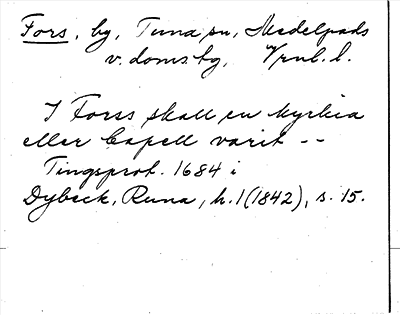 Fors, by, Tuna sn, Medelpads
v. domsbg, Vrnl. l.
I Forss skall en kyrkia
eller Capell varit --
Tingsprot. 1684 i
Dybeck, Runa, h. 1 (1842), s. 15.